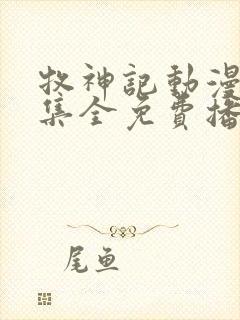 牧神記動漫
集全免費播
尾魚